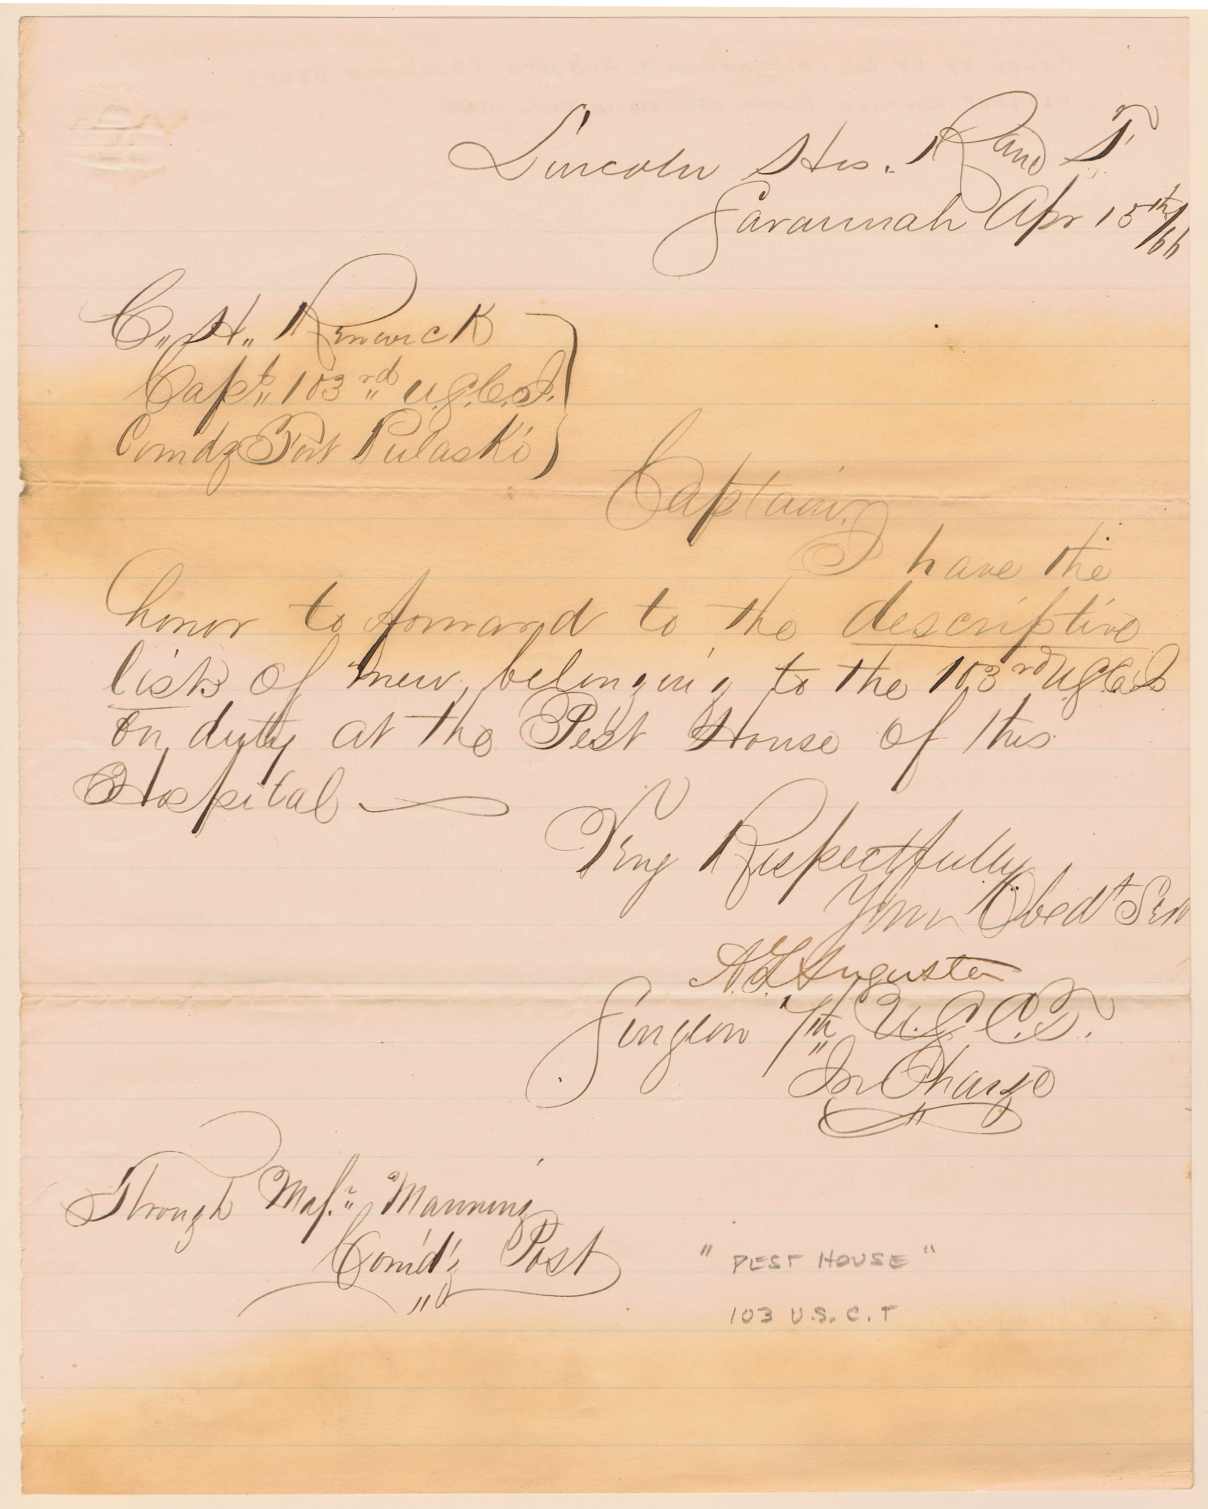 Lincoln Hos. R and F
Savannah Apr 15th/66
C. H. Renwick
Capt. 103rd U.S.C.I.
Comdg Fort Pulaski
Captain,
I have the
honor to forward to the descriptive
lists of men, belonging to the 103rd U.S.C.I.
on duty at the Pest House of this
Hospital
Very Respectfully
Your Obedt Servt
A. T. Augusta
Surgeon 7th U.S.C.T.
In Charge
Through Maj. Manning
Com'd'g Post
" PEST HOUSE "
103 U.S.C.T